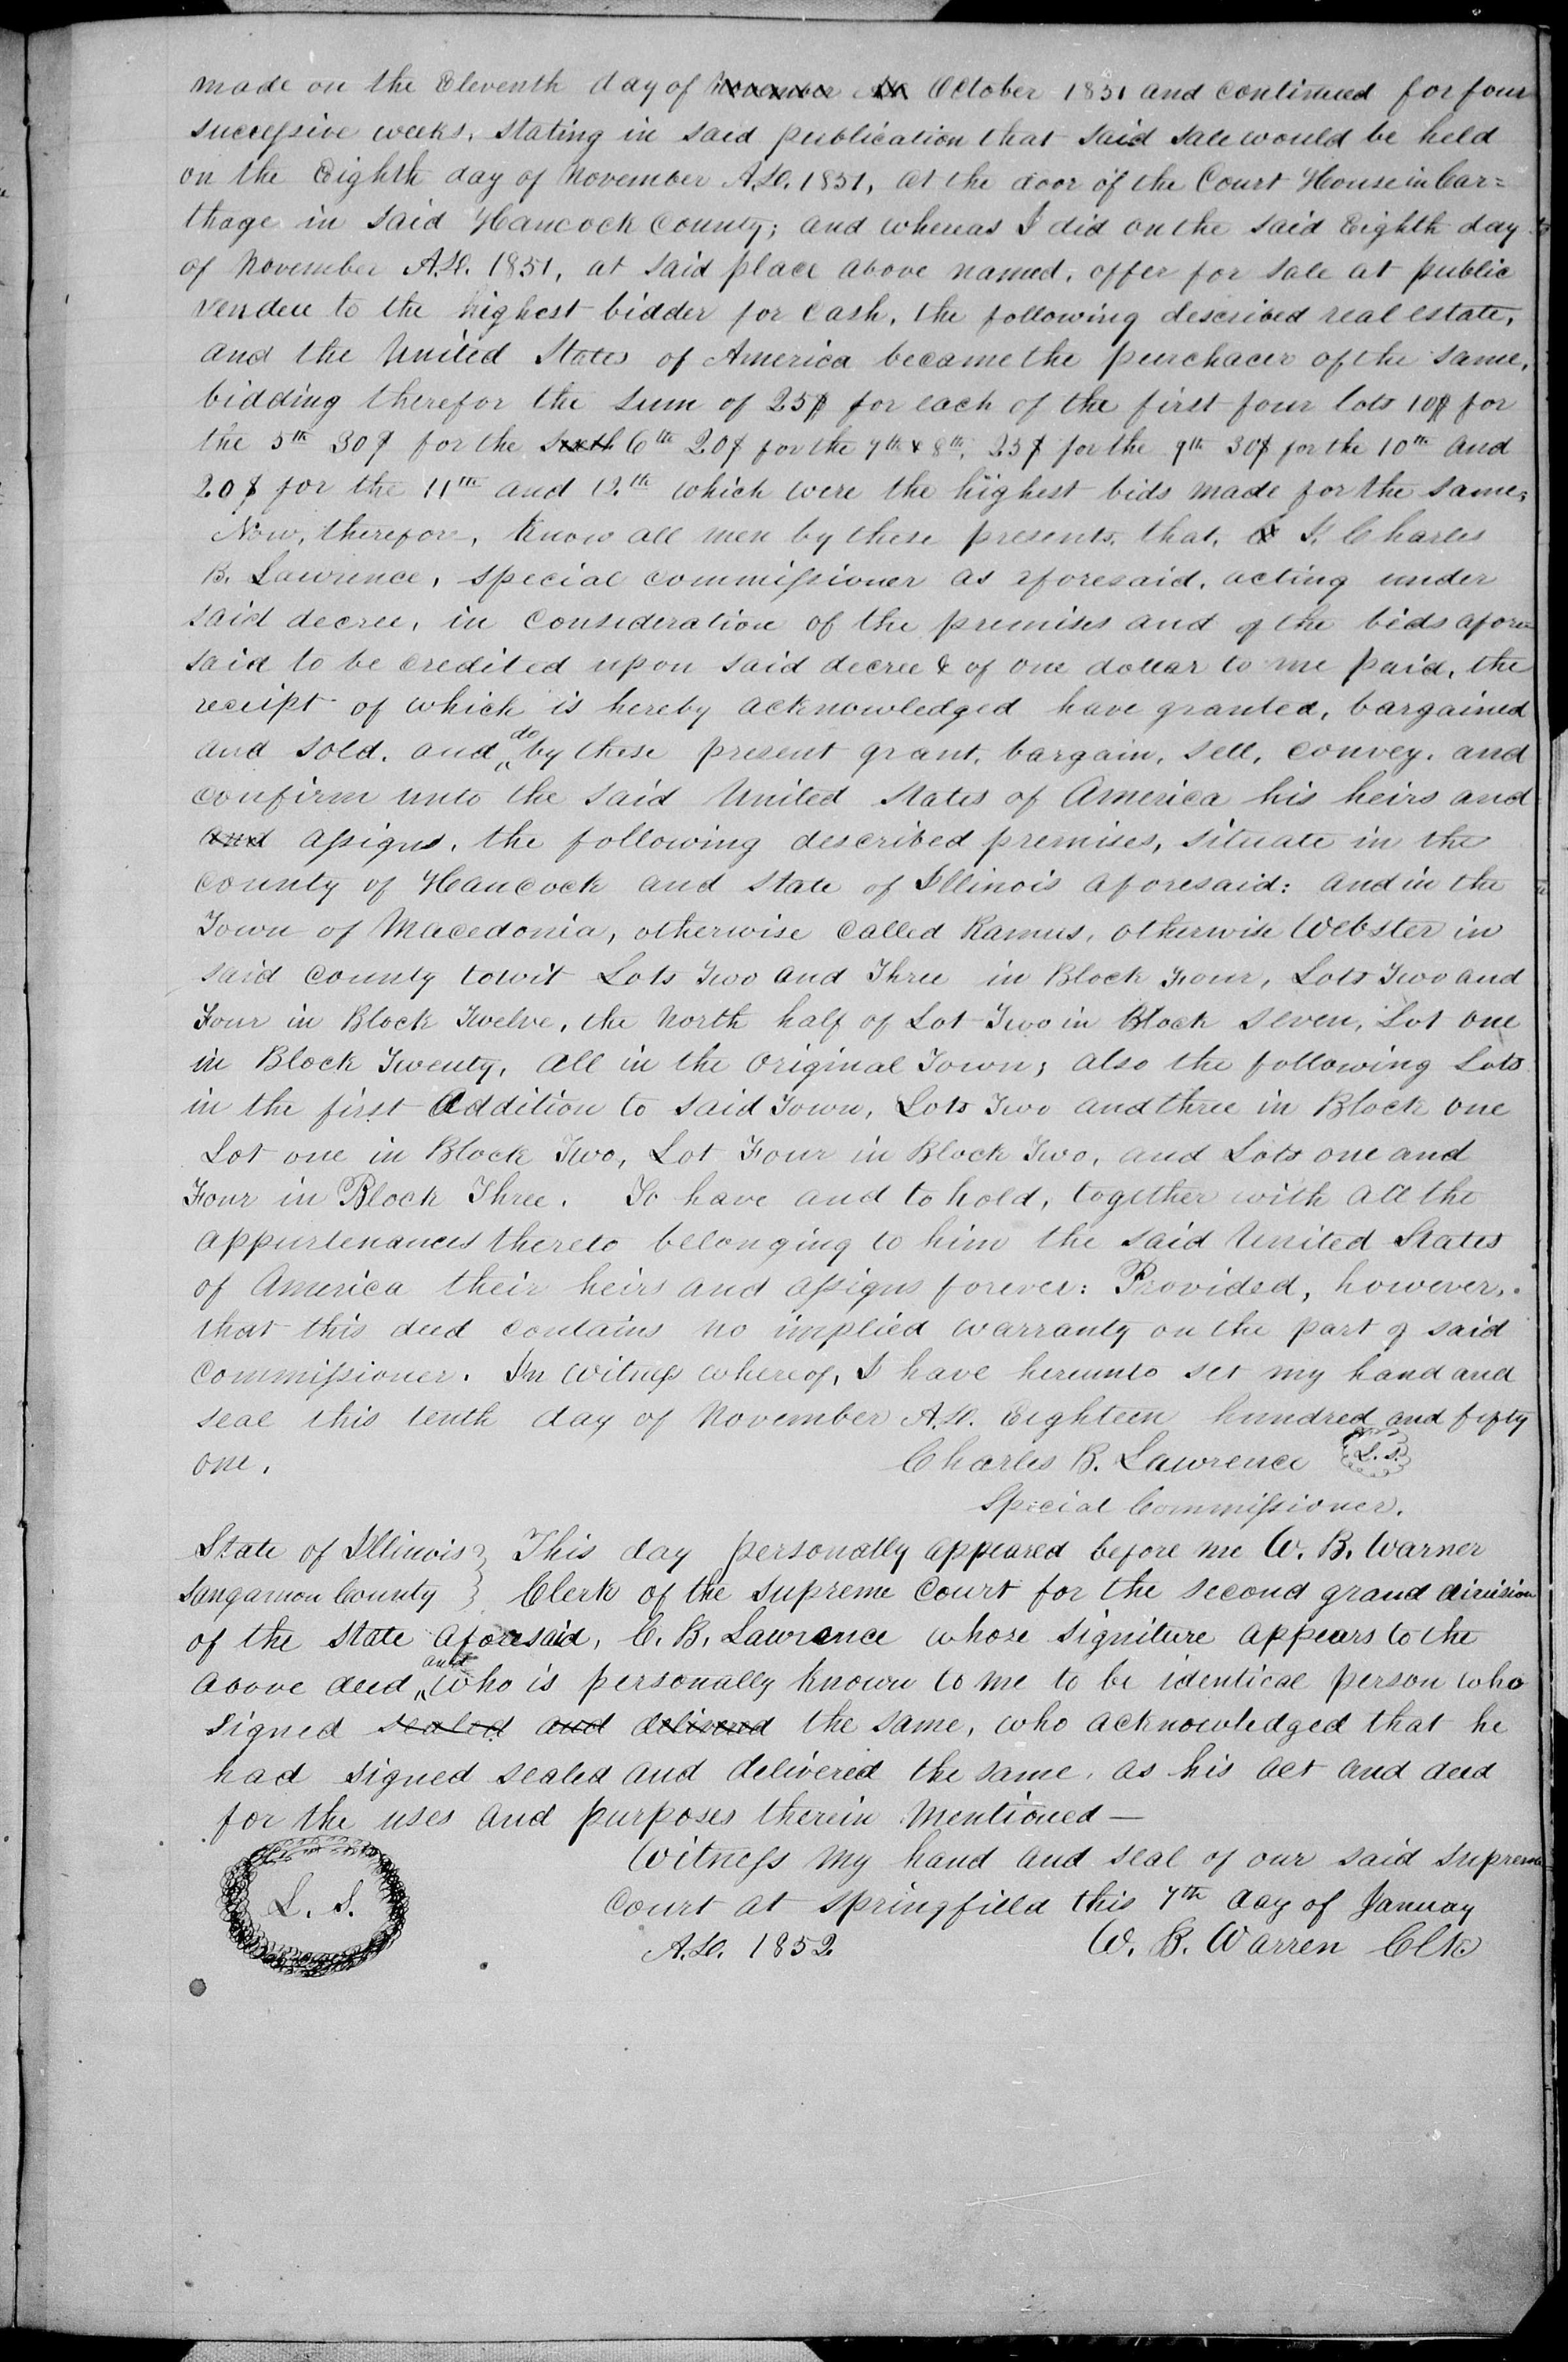 made on the Eleventh day of November AD October 1851 and continued for four
successive weeks, stating in said publication that said sale would be held
on the Eighth day of November A.D. 1851, at the door of the Court House in Car=
thage in said Hancock County; and whereas I did on the said Eighth day
of November A.D. 1851, at said place above named, offer for sale at public
vendue to the highest bidder for cash, the following described real estate,
and the United States of America became the purchacer of the same,
bidding therefor the sum of 25$ for each of the first four lots 10$ for
the 5th 30$ for the sixth 6th 20$ for the 7th & 8th, 25$ for the 9th 30$ for the 10th and
20$ for the 11th and 12th which were the highest bids made for the same;
Now, therefore, Know all men by these presents, that, I, Charles
B. Lawrence, special commissioner as aforesaid, acting under
said decree, in consideration of the premises and of the bids afore
said to be credited upon said decree & of one dollar to me paid, the
receipt of which is hereby acknowledged have granted, bargained
and sold, and do by these present grant, bargain, sell, convey, and
confirm unto the said United States of America his heirs and
and assigns, the following described premises, situate in the
county of Hancock and State of Illinois aforesaid: and in the
Town of Macedonia, otherwise called Ramus, otherwise Webster in
said county towit Lots Two and Three in Block Four, Lots Two and
Four in Block Twelve, the North half of Lot Two in Block seven, Lot one
in Block Twenty, all in the original Town; also the following Lots
in the first Addition to said Town, Lots Two and three in Block one
Lot one in Block Two, Lot Four in Block Two, and Lots one and
Four in Block Three. To have and to hold, together with all the
appurtenances thereto belonging to him the said United States
of America their heirs and assigns forever: Provided, however,
that this deed contains no implied warranty on the part of said
commissioner. In witness whereof, I have hereunto set my hand and
seal this tenth day of November A.D. Eighteen hundred and fifty
one. Charles B. Lawrence L.S.
Special Commissioner.
State of Illinois } This day personally appeared before me W. B. Warner
Sangamon County } Clerk of the supreme court for the second grand division
of the State aforesaid, C. B. Lawrence whose signiture appears to the
above deed and who is personally known to me to be identical person who
signed sealed and delivered the same, who acknowledged that he
had signed sealed and delivered the same, as his act and deed
for the uses and purposes therein mentioned—
Witness my hand and seal of our said supreme
L. S. court at springfield this 7th day of Januay
A.D. 1852 W. B. Warren Clk